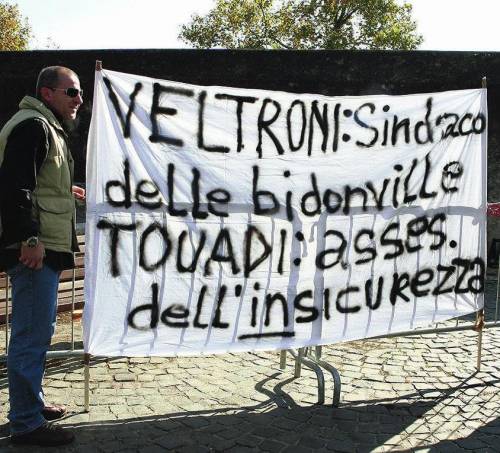 VELTRONI: Sindaco
delle bidonville
TOUADI: asses.
dell'insicurezza